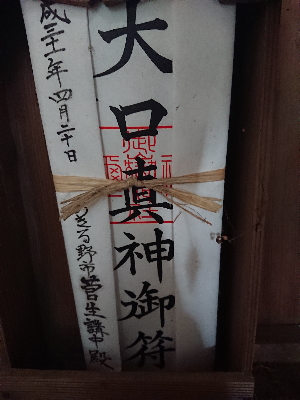 大口真神御符
成三十一年四月二十日
きる野市菅生講中殿